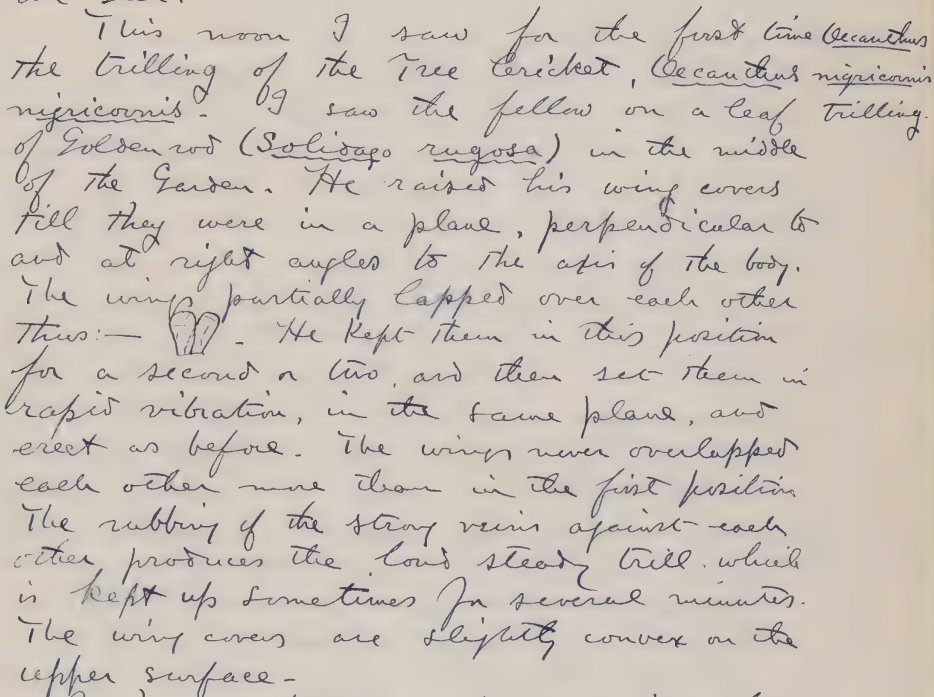 This noon I saw for the first time
the trilling of the Tree Cricket, Oecanthus
nigricornis. I saw the fellow on a leaf
of Goldenrod (Solidago rugosa) in the middle
of the Garden. He raised his wing covers
till they were in a plane, perpendicular to
and at right angles to the axis of the body.
The wings partially lapped over each other
thus:— . He kept them in this position
for a second or two, and then set them in
rapid vibration, in the same plane, and
erect as before. The wings never overlapped
each other more than in the first position
The rubbing of the strong veins against each
other produces the loud steady trill which
is kept up sometimes for several minutes.
The wing covers are slightly convex on the
upper surface-
Oecanthus
nigricornis
trilling.